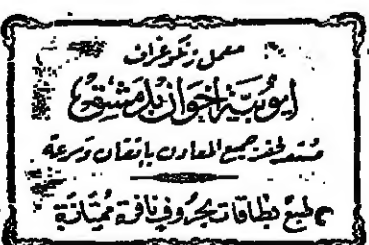 معمل زنكوغراف
ايوبية اخوان بدمشق
مستعد لحفر جميع المعادن بإتقان وسرعة
طبع بطاقات بحروف نافرة ممتازة